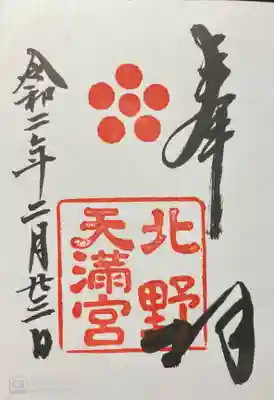 奉拝
北野
天満宮
令和二年二月廿三日